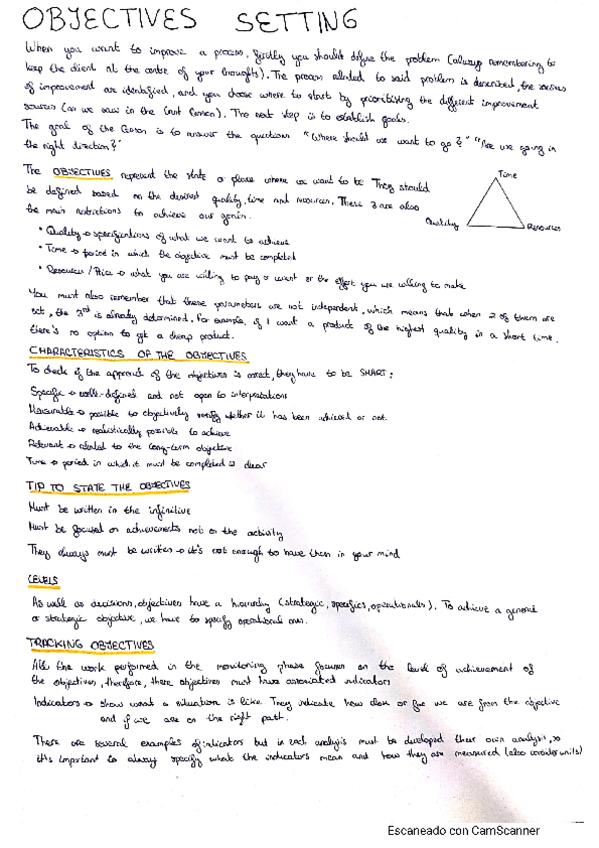 OBJECTIVES SETTING
When you want to improve a process, firstly you should define the problem (always remembering to
keep the client at the centre of your thoughts). The process related to said problem is described, the sources
of improvement are identified, and you choose where to start by prioritising the different improvement
sources (as we saw in the last lesson). The next step is to establish goals.
The goal of the lesson is to answer the questions "Where should we want to go?" "Are we going in
the right direction?"
The OBJECTIVES represent the state or place where we want to be. They should
be defined based on the desired quality, time and resources. These 3 are also
the main restrictions to achieve our
Time
Quality
Resources
• Quality → specifications of what we want to achieve
• Time → period in which the objective must be completed
• Resources / Price → what you are willing to pay or want or the effort you are willing to make
You must also remember that these parameters are not independent, which means that when 2 of them are
set, the 3rd is already determined. For example, if I want a product of the highest quality in a short time,
there's no option to get a cheap product.
CHARACTERISTICS OF THE OBJECTIVES
To check if the approach of the objectives is correct, they have to be SMART:
Specific → well-defined and not open to interpretations
Measurable → possible to objectively verify whether it has been achieved or not.
Achievable → realistically possible to achieve
Relevant → related to the long-term objective
Time → period in which it must be completed is clear
TIP TO STATE THE OBJECTIVES
Must be written in the infinitive
Must be focused on achievements not on the activity
They always must be written → it's not enough to have them in your mind
LEVELS
As well as decisions, objectives have a hierarchy (strategic, specifics, operationals). To achieve a general
or strategic objective, we have to specify operational ones.
TRACKING OBJECTIVES
All the work performed in the monitoring phase focuses on the level of achievement of
the objectives, therefore, these objectives must have associated indicators
Indicators → show what a situation is like. They indicate how close or far we are from the objective
and if we are on the right path.
There are several examples of indicators but in each analysis must be developed their own analysis, so
it's important to always specify what the indicators mean and how they are measured (also consider units)
Escaneado con CamScanner